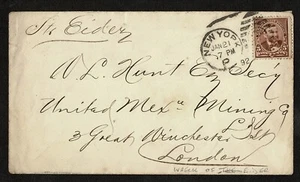 Str. Eider
NEW YORK
JAN 21
7 PM
92
W. L. Hunt Esq Sec'y
United Mexn Mining Co
Ld
3 Great Winchester St
London
WRECK OF